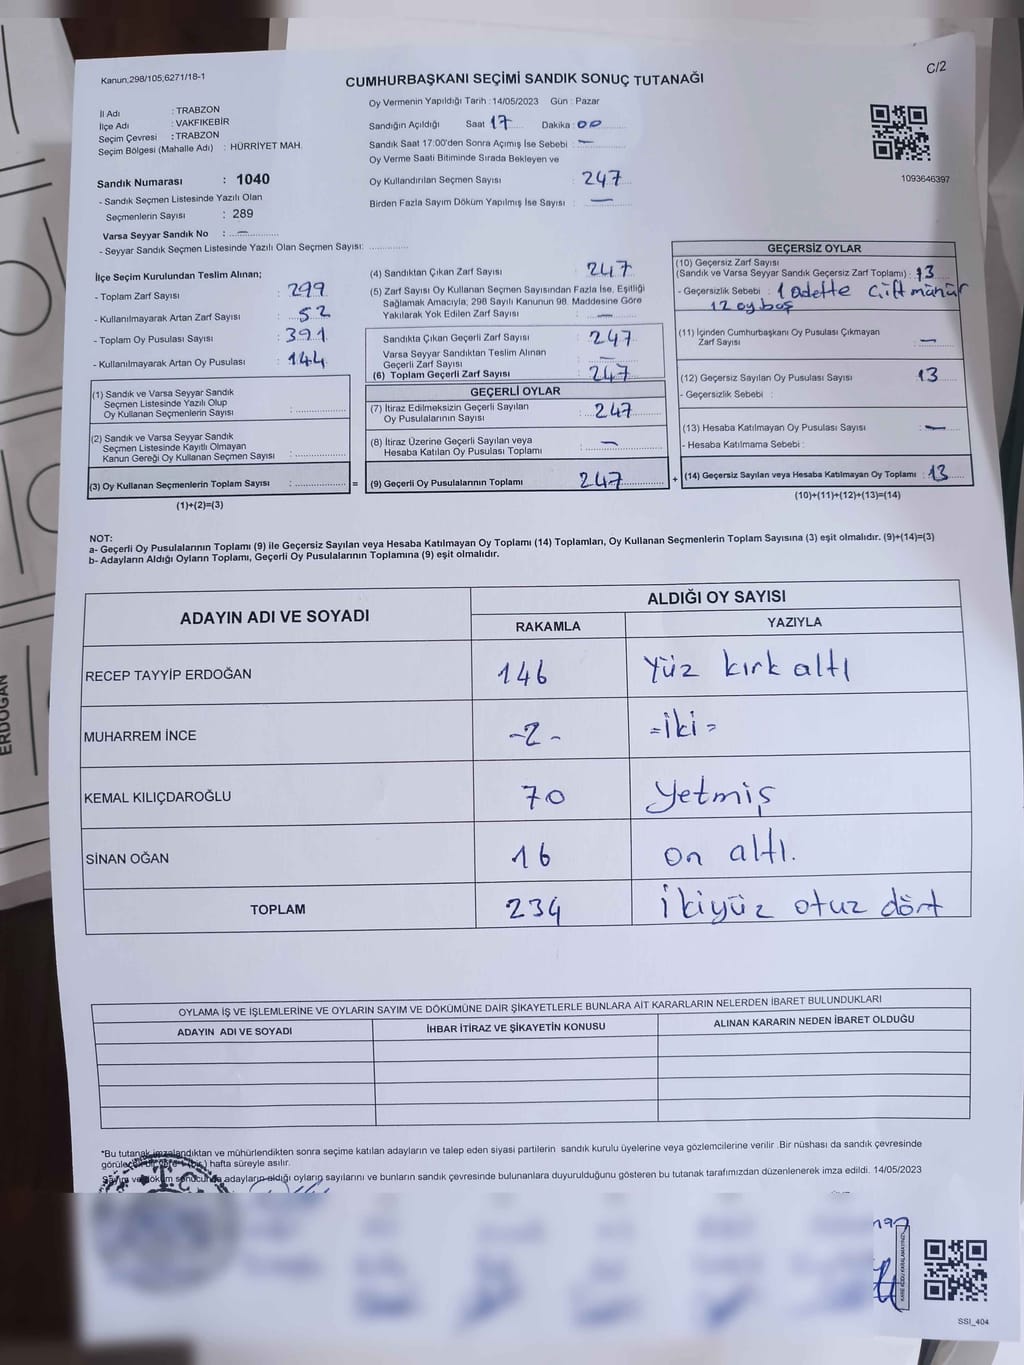 Kanun,298/105,6271/18-1
CUMHURBAŞKANI SEÇİMİ SANDIK SONUÇ TUTANAĞI
C/2
İl Adı : TRABZON
İlçe Adı : VAKFIKEBİR
Seçim Çevresi : TRABZON
Seçim Bölgesi (Mahalle Adı) : HÜRRİYET MAH.
Oy Vermenin Yapıldığı Tarih : 14/05/2023 Gün : Pazar
Sandığın Açıldığı Saat 17 Dakika : 00
Sandık Saat 17:00'den Sonra Açımış İse Sebebi : —
Oy Verme Saati Bitiminde Sırada Bekleyen ve
Oy Kullandırılan Seçmen Sayısı : 247
Birden Fazla Sayım Döküm Yapılmış İse Sayısı : —
1093646397
Sandık Numarası : 1040
- Sandık Seçmen Listesinde Yazılı Olan
Seçmenlerin Sayısı : 289
Varsa Seyyar Sandık No : —
- Seyyar Sandık Seçmen Listesinde Yazılı Olan Seçmen Sayısı: ............
İlçe Seçim Kurulundan Teslim Alınan;
- Toplam Zarf Sayısı : 299
- Kullanılmayarak Artan Zarf Sayısı : 52
- Toplam Oy Pusulası Sayısı : 391
- Kullanılmayarak Artan Oy Pusulası : 144
(1) Sandık ve Varsa Seyyar Sandık
Seçmen Listesinde Yazılı Olup
Oy Kullanan Seçmenlerin Sayısı : ............
(2) Sandık ve Varsa Seyyar Sandık
Seçmen Listesinde Kayıtlı Olmayan
Kanun Gereği Oy Kullanan Seçmen Sayısı : ............
(3) Oy Kullanan Seçmenlerin Toplam Sayısı : ............ =
(1)+(2)=(3)
(4) Sandıktan Çıkan Zarf Sayısı : 247
(5) Zarf Sayısı Oy Kullanan Seçmen Sayısından Fazla İse, Eşitliği
Sağlamak Amacıyla; 298 Sayılı Kanunun 98. Maddesine Göre
Yakılarak Yok Edilen Zarf Sayısı : —
Sandıkta Çıkan Geçerli Zarf Sayısı : 247
Varsa Seyyar Sandıktan Teslim Alınan
Geçerli Zarf Sayısı : —
(6) Toplam Geçerli Zarf Sayısı : 247
GEÇERLİ OYLAR
(7) İtiraz Edilmeksizin Geçerli Sayılan
Oy Pusulalarının Sayısı : 247
(8) İtiraz Üzerine Geçerli Sayılan veya
Hesaba Katılan Oy Pusulası Toplamı : —
(9) Geçerli Oy Pusulalarının Toplamı : 247 +
GEÇERSİZ OYLAR
(10) Geçersiz Zarf Sayısı
(Sandık ve Varsa Seyyar Sandık Geçersiz Zarf Toplamı) : 13
- Geçersizlik Sebebi : 1 adette çift mühür
12 oy boş
(11) İçinden Cumhurbaşkanı Oy Pusulası Çıkmayan
Zarf Sayısı : —
(12) Geçersiz Sayılan Oy Pusulası Sayısı : 13
- Geçersizlik Sebebi :
(13) Hesaba Katılmayan Oy Pusulası Sayısı : —
- Hesaba Katılmama Sebebi :
(14) Geçersiz Sayılan veya Hesaba Katılmayan Oy Toplamı : 13
(10)+(11)+(12)+(13)=(14)
NOT:
a- Geçerli Oy Pusulalarının Toplamı (9) ile Geçersiz Sayılan veya Hesaba Katılmayan Oy Toplamı (14) Toplamları, Oy Kullanan Seçmenlerin Toplam Sayısına (3) eşit olmalıdır. (9)+(14)=(3)
b- Adayların Aldığı Oyların Toplamı, Geçerli Oy Pusulalarının Toplamına (9) eşit olmalıdır.
ADAYIN ADI VE SOYADI ALDIĞI OY SAYISI
RAKAMLA YAZIYLA
RECEP TAYYİP ERDOĞAN 146 Yüz kırk altı
MUHARREM İNCE -2- =iki=
KEMAL KILIÇDAROĞLU 70 Yetmiş
SİNAN OĞAN 16 on altı.
TOPLAM 234 ikiyüz otuz dört
OYLAMA İŞ VE İŞLEMLERİNE VE OYLARIN SAYIM VE DÖKÜMÜNE DAİR ŞİKAYETLERLE BUNLARA AİT KARARLARIN NELERDEN İBARET BULUNDUKLARI
ADAYIN ADI VE SOYADI İHBAR İTİRAZ VE ŞİKAYETİN KONUSU ALINAN KARARIN NEDEN İBARET OLDUĞU
*Bu tutanak imzalandıktan ve mühürlendikten sonra seçime katılan adayların ve talep eden siyasi partilerin sandık kurulu üyelerine veya gözlemcilerine verilir. Bir nüshası da sandık çevresinde
hafta süreyle asılır.
adayların aldığı oyların sayılarını ve bunların sandık çevresinde bulunanlara duyurulduğunu gösteren bu tutanak tarafımızdan düzenlenerek imza edildi. 14/05/2023
SSI_404
ERDOĞAN